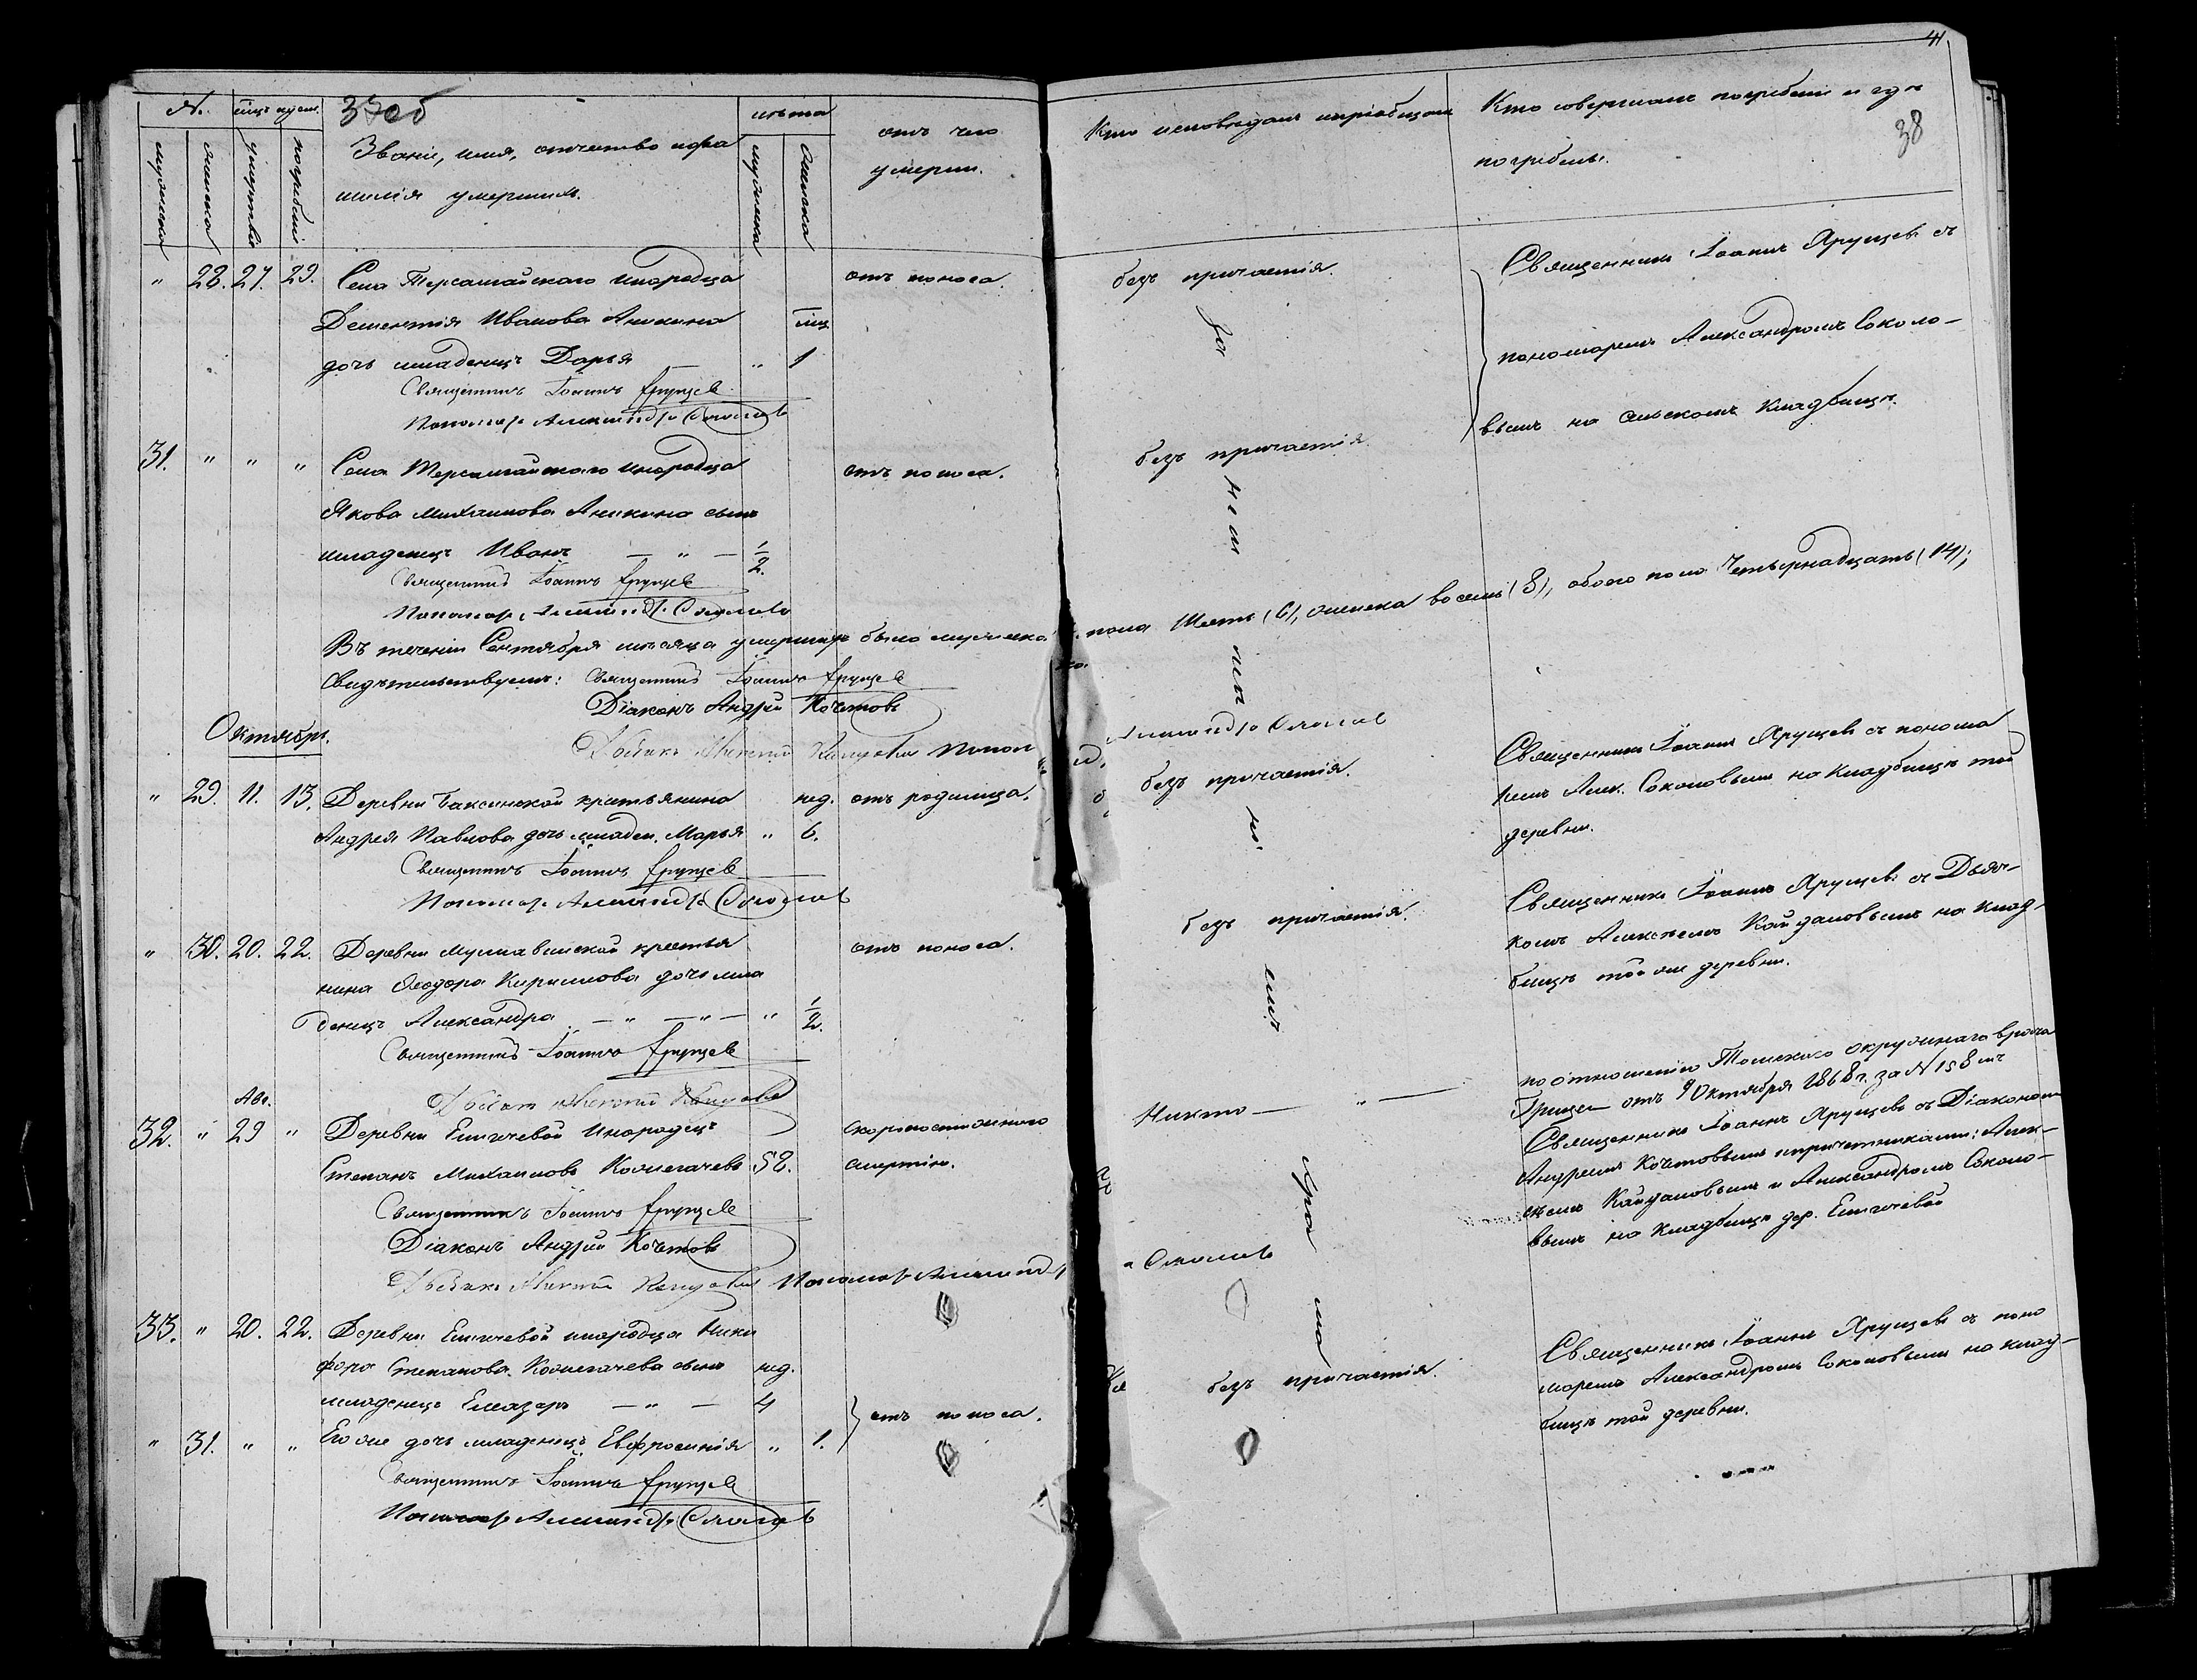 №.
мѣс. и день.
37об
мужеска
женска
умертвія
погребенія
Званіе, имя, отчество и фа
милія умершихъ.
лѣта
мужеска
женска
отъ чего
умерли.
" 28. 27. 29. Села Терсалгайскаго инородца
отъ поноса.
Дементія Иванова Аникина
мѣц
дочь младенецъ Дарья — " 1
Священникъ Іоаннъ Хрущевъ
Пономарь Александръ Соколовъ
31. " " " Села Терсалгайскаго инородца
отъ поноса.
Якова Михаилова Аникина сынъ
младенецъ Иванъ — " — 1/2.
Священникъ Іоаннъ Хрущевъ
Пономарь Александръ Соколовъ
Въ теченіи Сентября мѣсяца умершихъ было мужеска
Свидѣтельствуемъ: Священникъ Іоаннъ Хрущевъ
Діаконъ Андрей Кочетовъ
Октябрь.
Дьячекъ Алексѣй Поном
" 29. 11. 13. Деревни Баксинской крестьянина
нед. отъ родимца.
Андрея Павлова дочь младен. Марья " 6.
Священникъ Іоаннъ Хрущевъ
Пономарь Александръ Соколовъ
" 30. 20. 22. Деревни крестья
отъ поноса.
нина Ѳеодора Кирилова дочь мла
денецъ Александра — " — " — " 1/2.
Священникъ Іоаннъ Хрущевъ
Дьячекъ Алексѣй
Авг.
32. " 29 " Деревни Ешгичевой Инородецъ
скоропостижною
Степанъ Михаиловъ Колмогачевъ 52.
смертію.
Священникъ Іоаннъ Хрущевъ
Діаконъ Андрей Кочетовъ
Дьячекъ Алексѣй Пономарь Александръ
33. " 20. 22. Деревни Ешгичевой инородца Ники
фора Степанова Колмогачева сынъ нед.
младенецъ Елеазаръ — " — 4
отъ поноса.
" 31. " " Его же дочь младенецъ Евфросинія " 1.
Священникъ Іоаннъ Хрущевъ
Пономарь Александръ Соколовъ
41
38
Кто исповѣдалъ и пріобщалъ
Кто совершалъ погребеніе и гдѣ
погребены.
безъ причастія.
Священникъ Іоаннъ Хрущевъ съ
пономаремъ Александромъ Соколо-
вымъ на сельскомъ кладбищѣ.
безъ причастія.
пола Шесть (6), женска восемь (8), обоего пола Четырнадцать (14);
Александръ Соколовъ
безъ причастія.
Священникъ Іоаннъ Хрущевъ съ понома
ремъ Алек. Соколовымъ на кладбищѣ той
деревни.
безъ причастія.
Священникъ Іоаннъ Хрущевъ съ Дьяч-
комъ Алексѣемъ на клад-
бищѣ той же деревни.
Никто — " —
по отношенію Томскаго окружнаго врача
отъ 9 Октября 1868 г. за № 158 мъ
Священникъ Іоаннъ Хрущевъ съ Діакономъ
Андреемъ Кочетовымъ и причетниками: Алек-
сѣемъ и Александромъ Соколо-
вымъ на кладбищѣ дер. Ешгичевой
Соколовъ
безъ причастія.
Священникъ Іоаннъ Хрущевъ съ поно
маремъ Александромъ Соколовымъ на клад-
бищѣ той деревни.